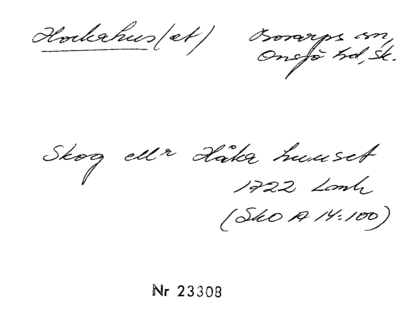 Hockahus(et) Bonarps sn,
Onsjö hd, Sk.
Skog ellr Håka huuset
1722 Lmk
(Sko A 14:100)
Nr 23308